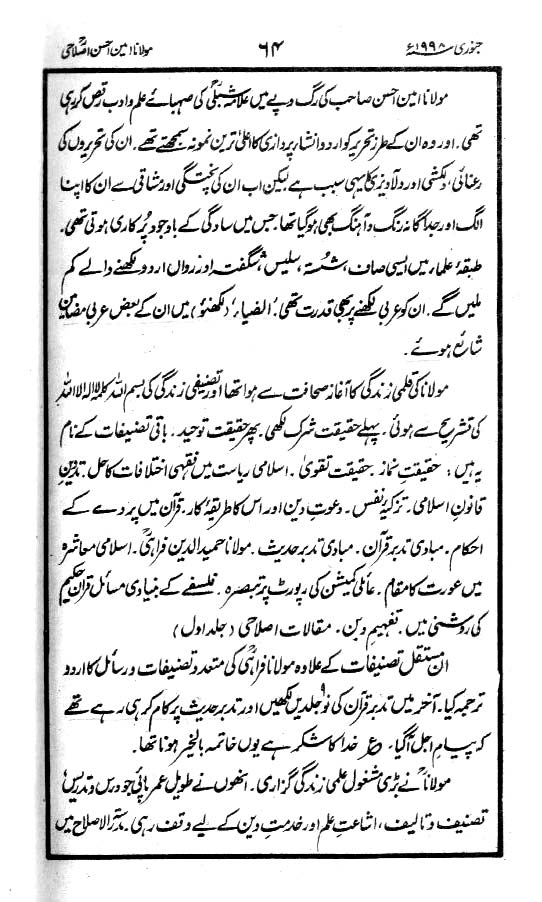 جنوری ۱۹۹۸ء ۶۴ مولانا امین احسن اصلاحیؒ
مولانا امین احسن صاحب کی رگ و پے میں علامہ شبلیؒ کی صہبائے علم و ادب رقص کر رہی
تھی۔ اور وہ ان کے طرز تحریر کو اردو انشاء پردازی کا اعلیٰ ترین نمونہ سمجھتے تھے۔ ان کی تحریروں کی
رعنائی، دلکشی اور دلآویزی کا یہی سبب ہے لیکن اب ان کی پختگی اور مشاقی سے ان کا اپنا
الگ اور جداگانہ رنگ و آہنگ بھی ہو گیا تھا، جس میں سادگی کے باوجود پُرکاری ہوتی تھی۔
طبقۂ علماء میں ایسی صاف، شُستہ، سلیس، شگفتہ اور رواں اردو لکھنے والے کم
ملیں گے۔ ان کو عربی لکھنے پر بھی قدرت تھی۔ "الضیاء" (لکھنؤ) میں ان کے بعض عربی مضامین
شائع ہوئے۔
مولانا کی قلمی زندگی کا آغاز صحافت سے ہوا تھا اور تصنیفی زندگی کی بسم اللہ کلمہ لا الہ الا اللہ
کی تشریح سے ہوئی۔ پہلے حقیقت شرک لکھی۔ پھر حقیقت توحید۔ باقی تصنیفات کے نام
یہ ہیں: حقیقتِ نماز۔ حقیقت تقویٰ۔ اسلامی ریاست میں فقہی اختلافات کا حل۔ تدوینِ
قانونِ اسلامی۔ تزکیۂ نفس۔ دعوتِ دین اور اس کا طریقۂ کار۔ قرآن میں پردے کے
احکام۔ مبادی تدبر قرآن۔ مبادی تدبر حدیث۔ مولانا حمید الدین فراہیؒ۔ اسلامی معاشرہ
میں عورت کا مقام۔ عائلی کمیشن کی رپورٹ پر تبصرہ۔ فلسفے کے بنیادی مسائل قرآن حکیم
کی روشنی میں۔ تفہیم دین۔ مقالات اصلاحی (جلد اول)
ان مستقل تصنیفات کے علاوہ مولانا فراہیؒ کی متعدد تصنیفات و رسائل کا اردو
ترجمہ کیا۔ آخر میں تدبر قرآن کی نو ۹ جلدیں لکھیں اور تدبر حدیث پر کام کر ہی رہے تھے
کہ پیام اجل آ گیا۔ ع خدا کا شکر ہے یوں خاتمہ بالخیر ہونا تھا۔
مولاناؒ نے بڑی مشغول علمی زندگی گزاری۔ انھوں نے طویل عمر پائی جو درس و تدریس
تصنیف و تالیف، اشاعتِ علم اور خدمتِ دین کے لیے وقف رہی۔ مدرسۃ الاصلاح میں